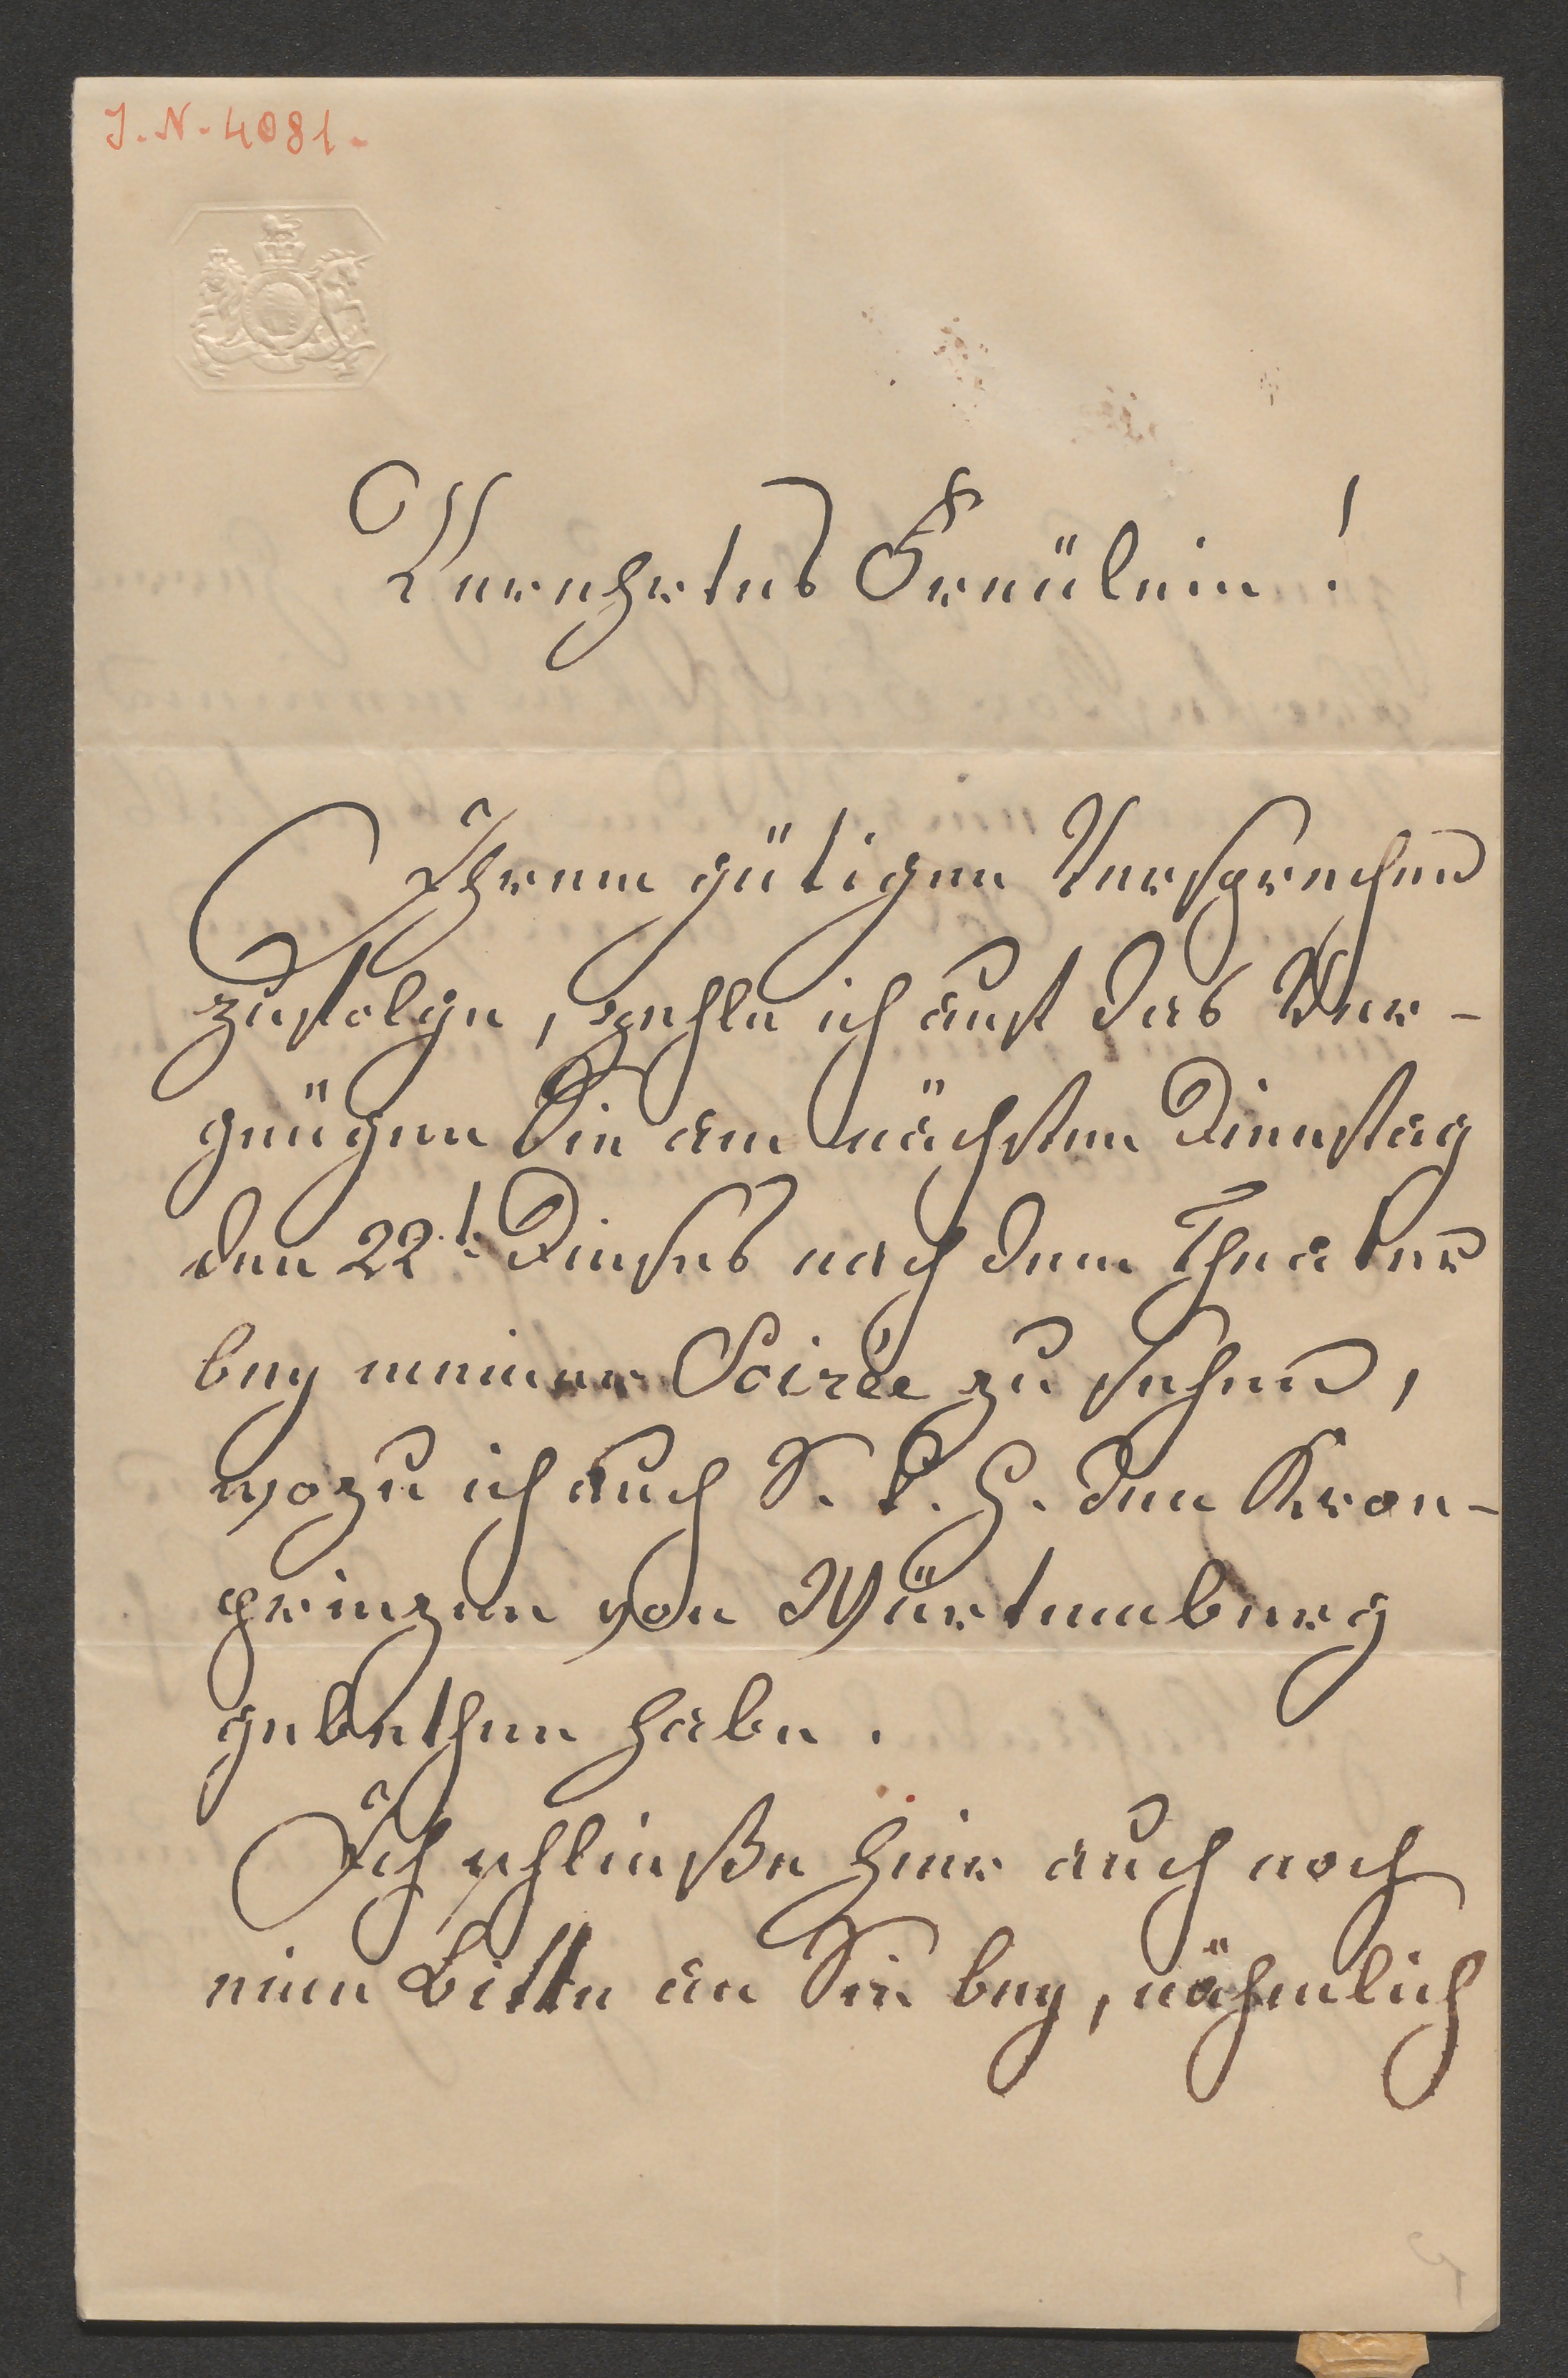 J. N. 4081.
Verehrtes Fräulein!
Ihrem gütigen Versprechen
zufolge, zehle ich auf das Ver-
gnügen Sie am nächsten Dienstag
den 22t. Dieses nach dem Theater
bey meiner Soirée zu sehen,
wozu ich auch S. k. H. den Kron-
prinzen von Würtemberg
gebethen habe.
Ich schließe hier auch noch
eine Bitte an Sie bey, nähmlich